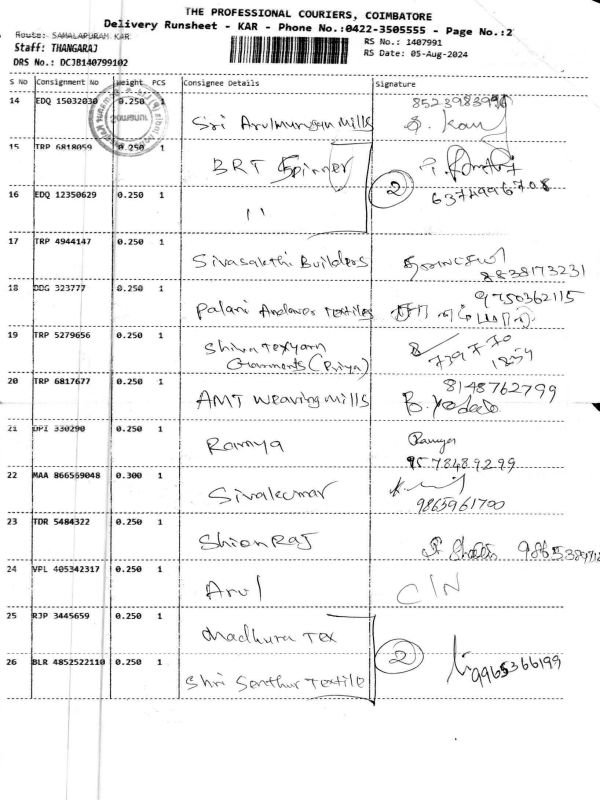 THE PROFESSIONAL COURIERS, COIMBATORE
Delivery Runsheet - KAR - Phone No.:0422-3505555 - Page No.:2
Route: SAMALAPURAM KAR
Staff: THANGARAJ
RS No.: 1407991
DRS No.: DCJB140799102
RS Date: 05-Aug-2024
S No Consignment No Weight PCS Consignee Details Signature
14 EDQ 15032030 0.250 1 Sri Arulmurugan Mills
15 TRP 6818059 0.250 1 BRT Spinner
16 EDQ 12350629 0.250 1 11 2
17 TRP 4944147 0.250 1 Sivasakthi Builders 8838173231
18 DDG 323777 0.250 1 Palani Andavar Textiles 9750362115
19 TRP 5279656 0.250 1 Shiva Texyarn
Garments (Priya)
20 TRP 6817677 0.250 1 AMT Weaving Mills 8148762799
21 DPI 330290 0.250 1 Ramya Ramya
9578489299
22 MAA 866569048 0.300 1 Sivakumar
9865961700
23 TDR 5484322 0.250 1
24 VPL 405342317 0.250 1 Arul C/N
25 RJP 3445659 0.250 1 Madhura Tex
26 BLR 4852522110 0.250 1 Shri Senthur Textile 2 9965366199